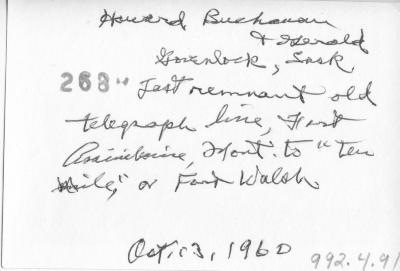 Howard Buchanan
& Gerald
Govenlock, Sask.
268" Last remnant old
telegraph line, Fort
Assiniboine, Mont. to "ten
Mile," or Fort Walsh
Oct. 13, 1960
992.4.91